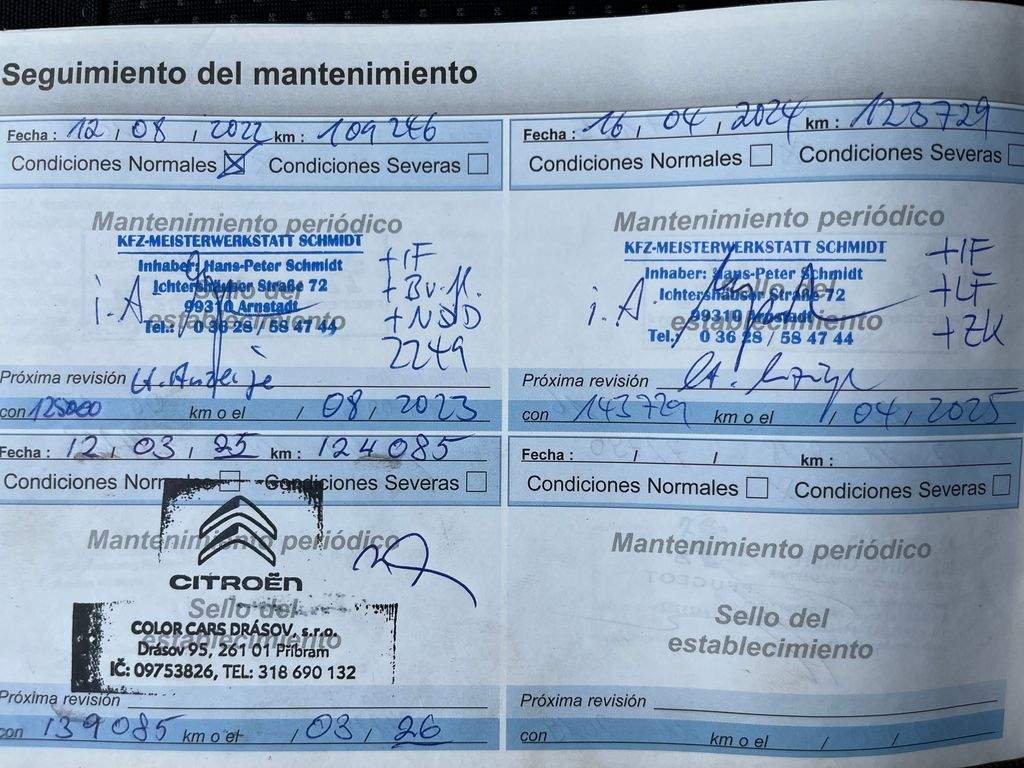 Seguimiento del mantenimiento
Fecha : 12 / 08 / 2022 km : 109 246
Condiciones Normales ☒ Condiciones Severas ☐
Mantenimiento periódico
KFZ-MEISTERWERKSTATT SCHMIDT
Inhaber: Hans-Peter Schmidt
Ichtershäuser Straße 72
99310 Arnstadt
Tel.: 0 36 28 / 58 47 44
Sello del
establecimiento
i.A.
+IF
+Br.fl.
+NDD
2249
Próxima revisión lt. Anzeige
con 125000 km o el / 08 / 2023
Fecha : 16 / 04 / 2024 km : 123729
Condiciones Normales ☐ Condiciones Severas ☐
Mantenimiento periódico
KFZ-MEISTERWERKSTATT SCHMIDT
Inhaber: Hans-Peter Schmidt
Ichtershäuser Straße 72
99310 Arnstadt
Tel.: 0 36 28 / 58 47 44
Sello del
establecimiento
i.A.
+IF
+LF
+ZK
Próxima revisión lt. Anzeige
con 143729 km o el / 04 / 2025
Fecha : 12 / 03 / 25 km : 124085
Condiciones Normales ☐ Condiciones Severas ☐
Mantenimiento periódico
CITROËN
Sello del
establecimiento
COLOR CARS DRÁSOV, s.r.o.
Drásov 95, 261 01 Příbram
IČ: 09753826, TEL: 318 690 132
Próxima revisión
con 139085 km o el / 03 / 26
Fecha : / / km :
Condiciones Normales ☐ Condiciones Severas ☐
Mantenimiento periódico
Sello del
establecimiento
Próxima revisión
con km o el / /